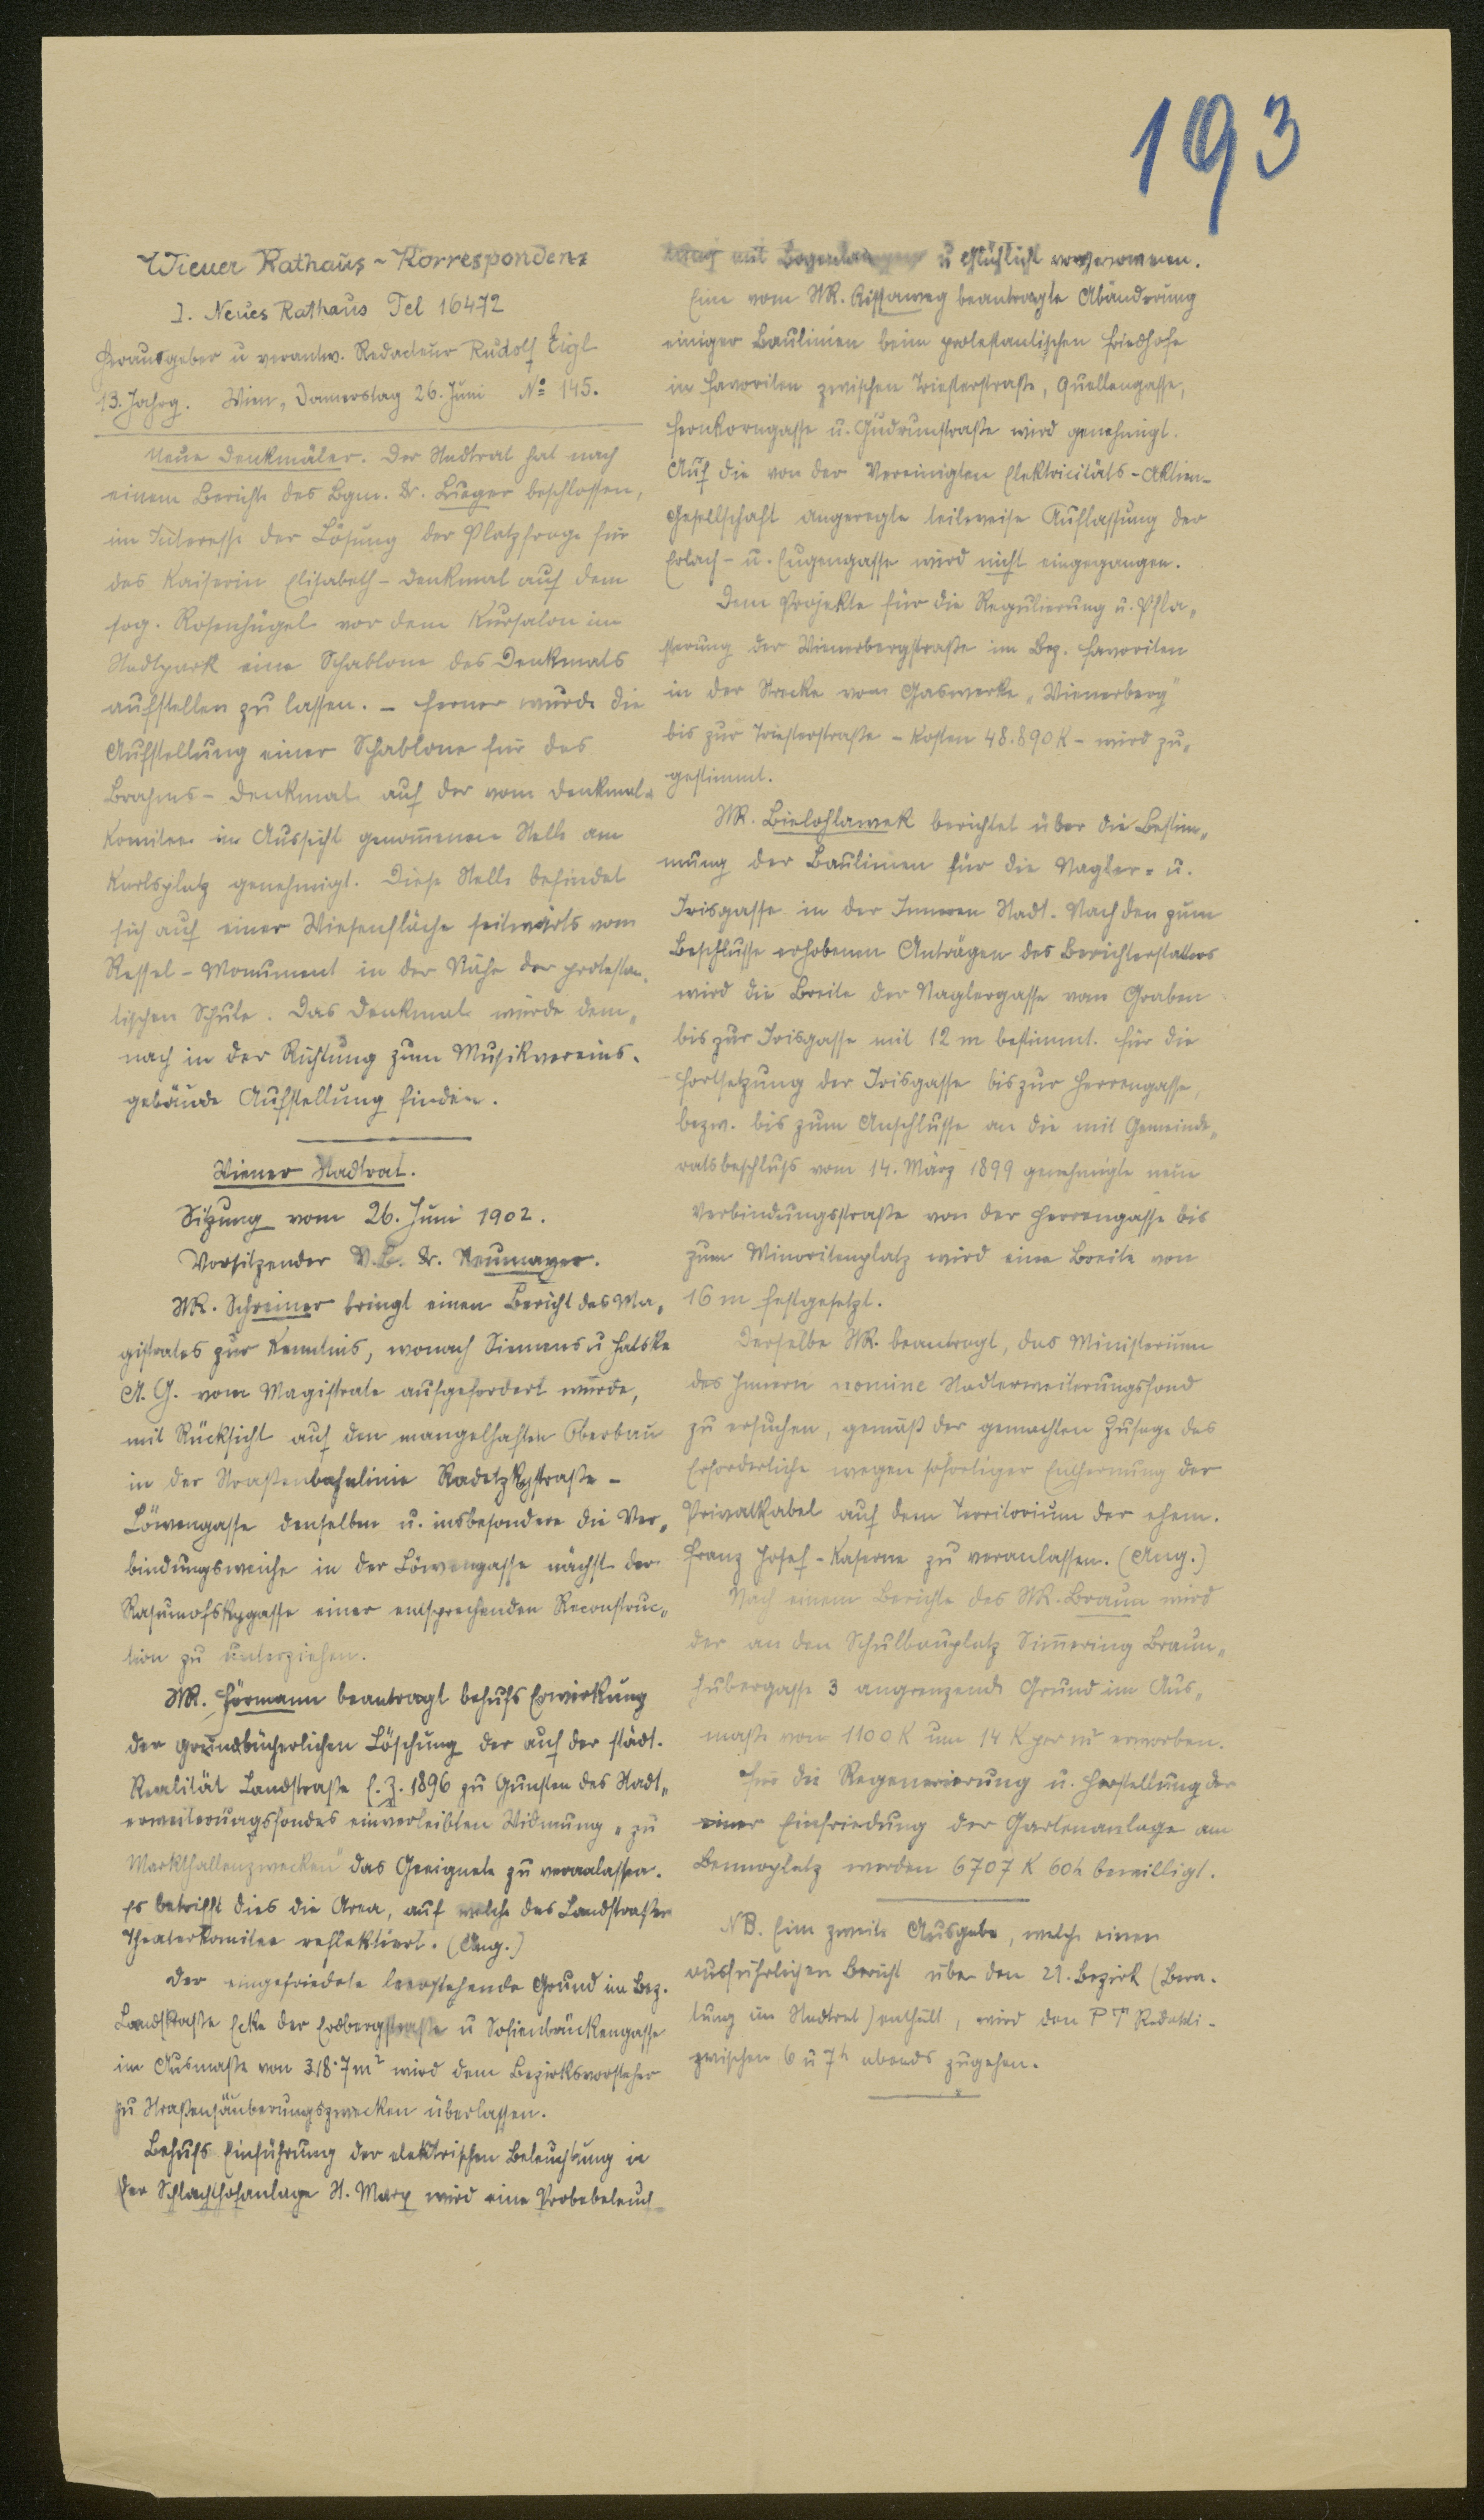 193
Wiener Rathaus-Korrespondenz
I. Neues Rathaus Tel 16472
Herausgeber u verantw. Redacteur Rudolf Eigl
13. Jahrg. Wien, Donnerstag 26. Juni № 145.
Neue Denkmäler. Der Stadtrat hat nach
einem Berichte des Bgm. Dr. Lueger beschlossen,
im Interesse der Lösung der Platzfrage für
das Kaiserin Elisabeth-Denkmal auf dem
sog. Rosenhügel vor dem Kursalon im
Stadtpark eine Schablone des Denkmals
aufstellen zu lassen. – Ferner wurde die
Aufstellung einer Schablone für das
Brahms-Denkmal auf der vom Denkmal-
Komitee in Aussicht genom̅enen Stelle am
Karlsplatz genehmigt. Diese Stelle befindet
sich auf einer Wiesenfläche seitwärts vom
Ressel-Monument in der Nähe der protestan„
tischen Schule. Das Denkmal würde dem„
nach in der Richtung zum Musikvereins-
gebäude Aufstellung finden.
Wiener Stadtrat.
Sitzung vom 26. Juni 1902.
Vorsitzender V.B. Dr. Neumayer.
StR. Schreiner bringt einen Bericht des Ma„
gistrates zur Kenntnis, wonach Siemens u Halske
A. G. vom Magistrate aufgefordert wurde,
mit Rücksicht auf den mangelhaften Oberbau
in der Straßenbahnlinie Radetzkystraße –
Löwengasse denselben u. insbesondere die Ver„
bindungsweiche in der Löwengasse nächst der
Rasumofskygasse einer entsprechenden Reconstruc„
tion zu unterziehen.
StR. Hörmann beantragt behufs Erwirkung
der grundbücherlichen Löschung der auf der städt.
Realität Landstraße E. Z. 1896 zu Gunsten des Stadt„
erweiterungsfondes einverleibten Widmung „zu
Markthallenzwecken" das Geeignete zu veranlassen.
Es betrifft dies die Area, auf welche das Landstraßer
Theaterkomitee reflektiert. (Ang.)
Der eingefriedete leerstehende Grund im Bez.
Landstraße Ecke der Erdbergstraße u Sofienbrückengasse
im Ausmaße von 318·7 m² wird dem Bezirksvorsteher
zu Straßensäuberungszwecken überlassen.
Behufs Einführung der elektrischen Beleuchtung in
der Schlachthofanlage St. Marx wird eine Probebeleuch-
tung mit Bogenlampen u Glühlicht vorgenommen.
Eine vom StR. Rissaweg beantragte Abänderung
einiger Baulinien beim protestantischen Friedhofe
in Favoriten zwischen Triesterstraße, Quellengasse,
Fernkorngasse u. Gudrunstraße wird genehmigt.
Auf die von der Vereinigten Elektricitäts-Aktien-
Gesellschaft angeregte teilweise Auflassung der
Erlach- u. Eugengasse wird nicht eingegangen.
Dem Projekte für die Regulierung u. Pfla„
sterung der Wienerbergstraße im Bez. Favoriten
in der Strecke vom Gaswerke „Wienerberg"
bis zur Triesterstraße – Kosten 48.890 K – wird zu„
gestimmt.
StR. Bielohlawek berichtet über die Bestim„
mung der Baulinien für die Nagler- u.
Irisgasse in der Inneren Stadt. Nach den zum
Beschlusse erhobenen Anträgen des Berichterstatters
wird die Breite der Naglergasse vom Graben
bis zur Irisgasse mit 12 m bestimmt. Für die
Fortsetzung der Irisgasse bis zur Herrengasse,
bezw. bis zum Anschlusse an die mit Gemeinde„
ratsbeschluß vom 14. März 1899 genehmigte neue
Verbindungsstraße von der Herrengasse bis
zum Minoritenplatz wird eine Breite von
16 m festgesetzt.
Derselbe StR. beantragt, das Ministerium
des Innern nomine Stadterweiterungsfond
zu ersuchen, gemäß der gemachten Zusage das
Erforderliche wegen sofortiger Entfernung der
Privatkabel auf dem Territorium der ehem.
Franz Josef-Kaserne zu veranlassen. (Ang.)
Nach einem Berichte des StR. Braun wird
der an den Schulbauplatz Sim̅ering Braun„
hubergasse 3 angrenzende Grund im Aus„
maße von 1100 K um 14 K per m² erworben.
Für die Regenerierung u. Herstellung der
einer Einfriedung der Gartenanlage am
Bennoplatz werden 6707 K 60 h bewilligt.
NB. Eine zweite Ausgabe, welche einen
ausführlichen Bericht über den 21. Bezirk (Bera-
tung im Stadtrat) enthält, wird den P T Redakti-
zwischen 6 u 7 h abends zugehen.